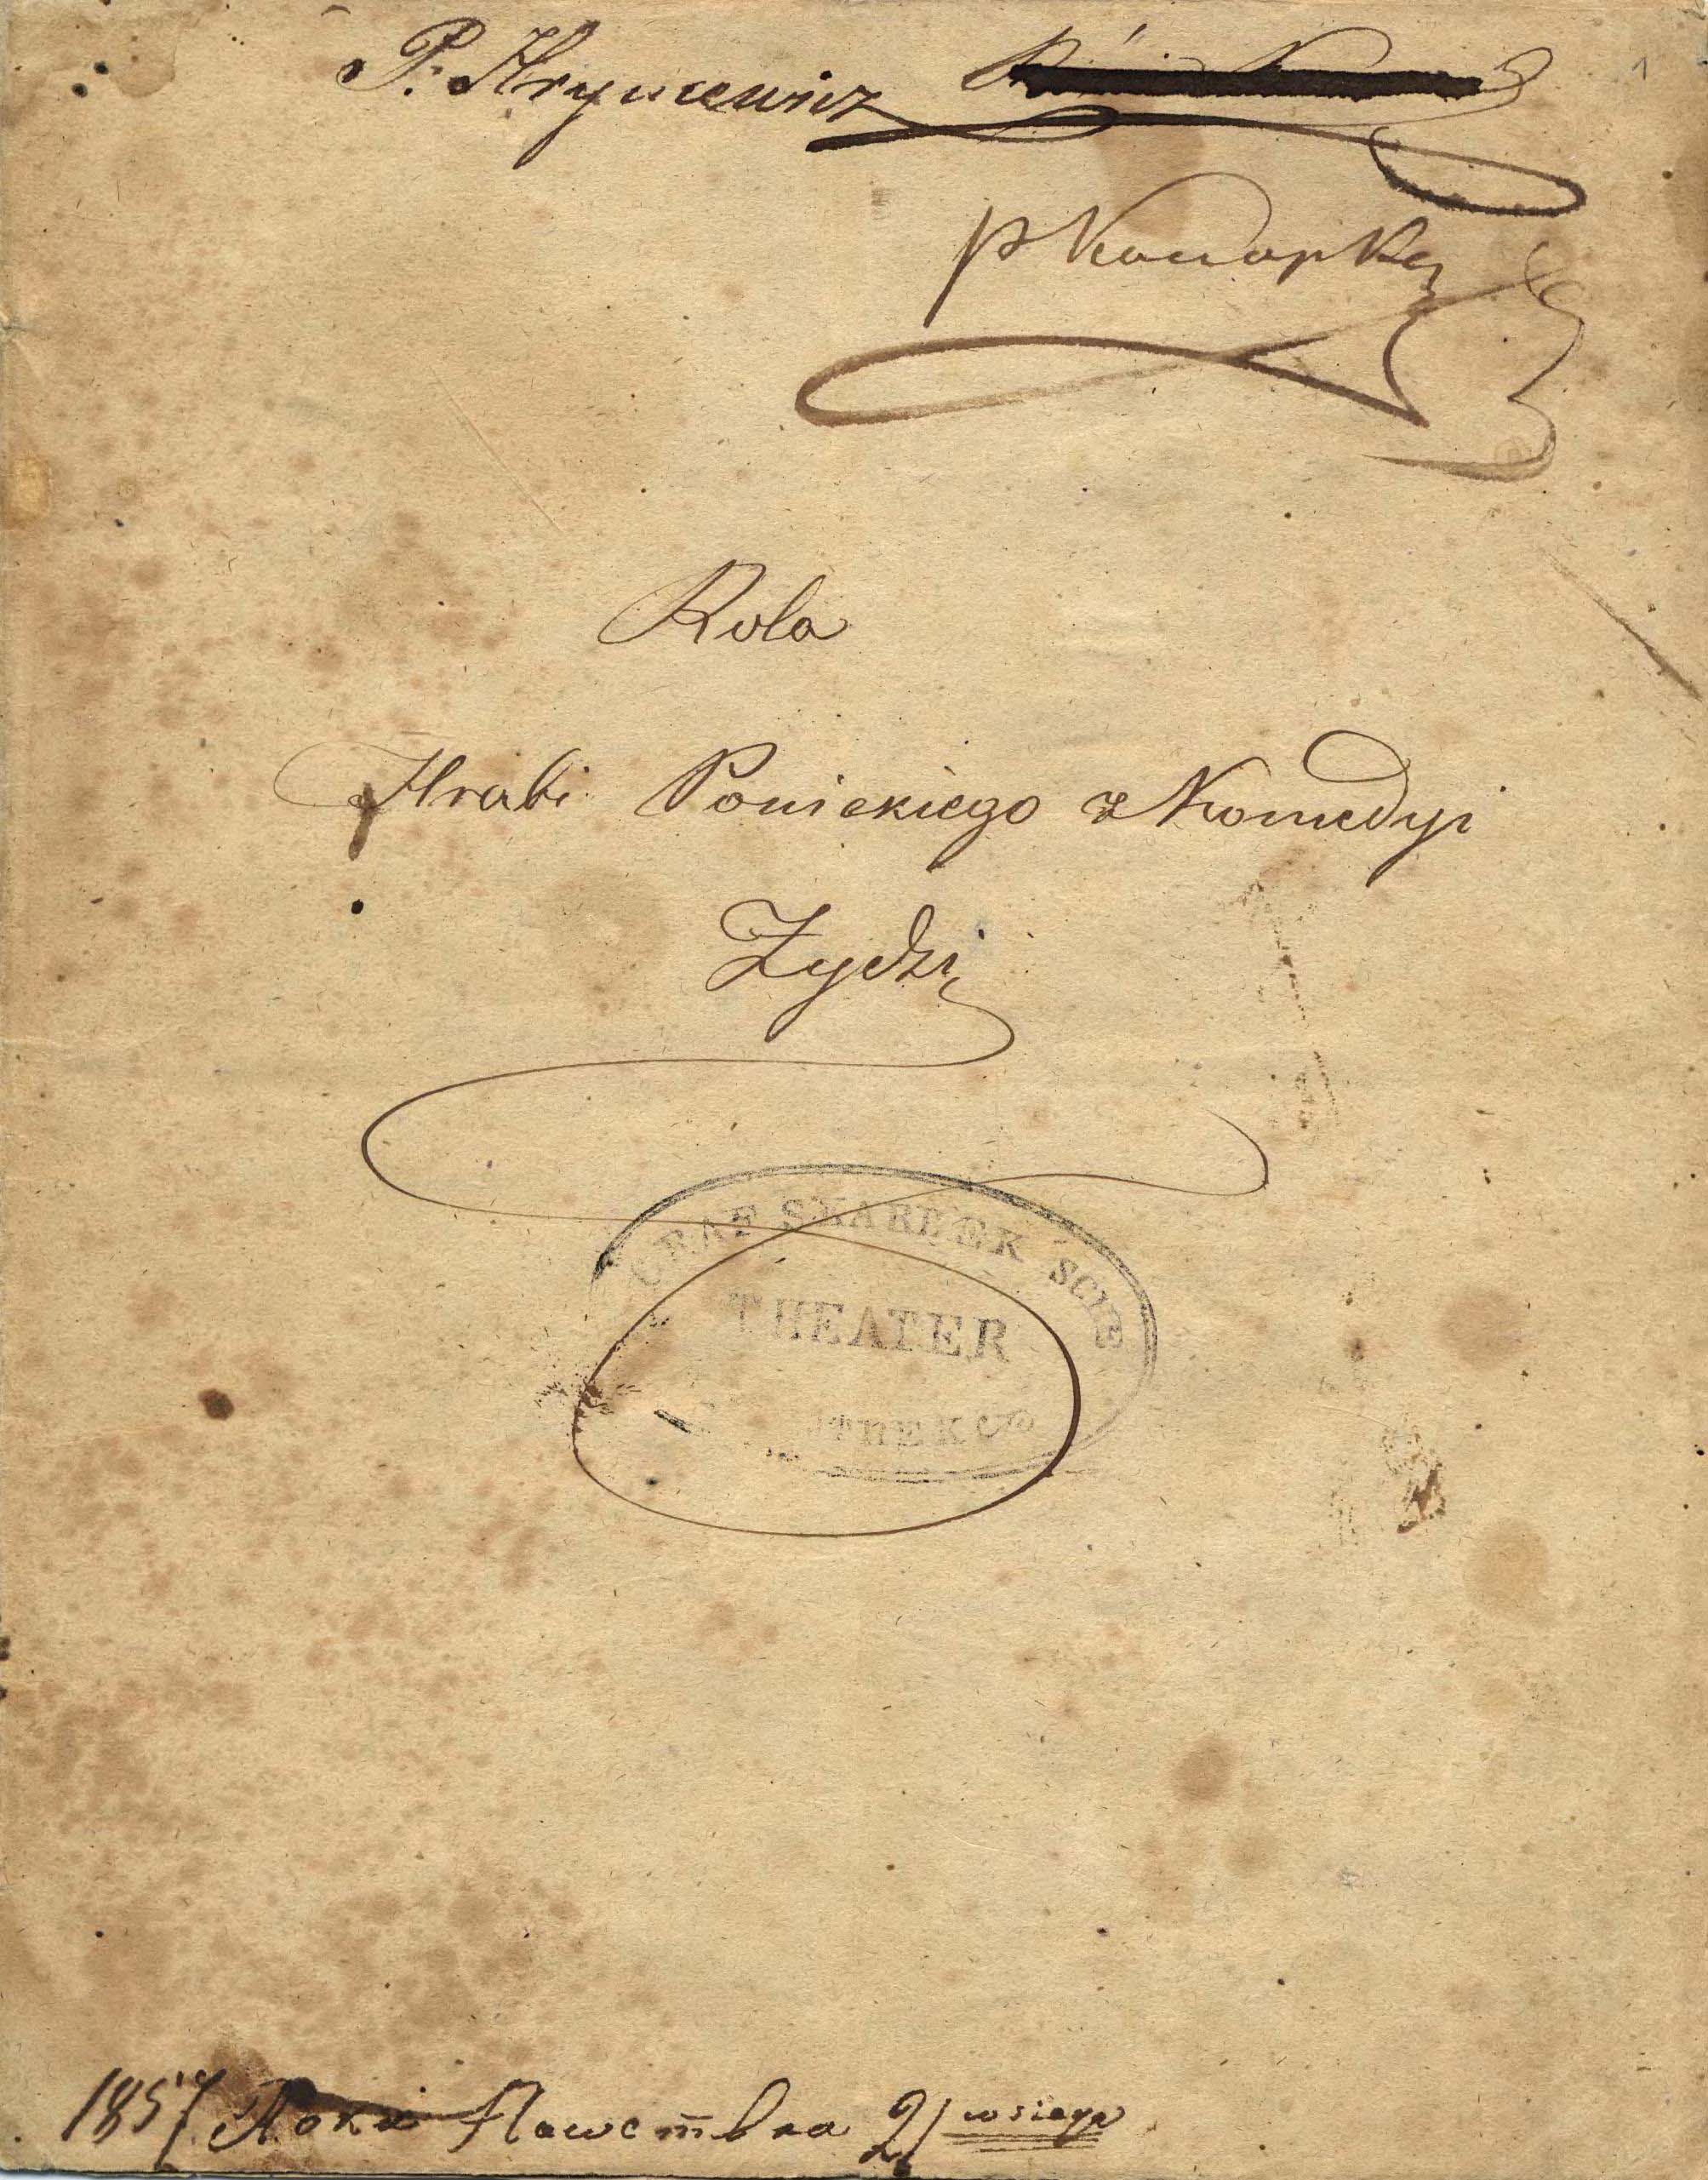 P. Hryncewicz
1
p Konopka
Rola
Hrabi Ponickiego z Komedyi
Zydzi
GRAF SKARBEK SCHE
THEATER
1857 Roku Nowembra 21